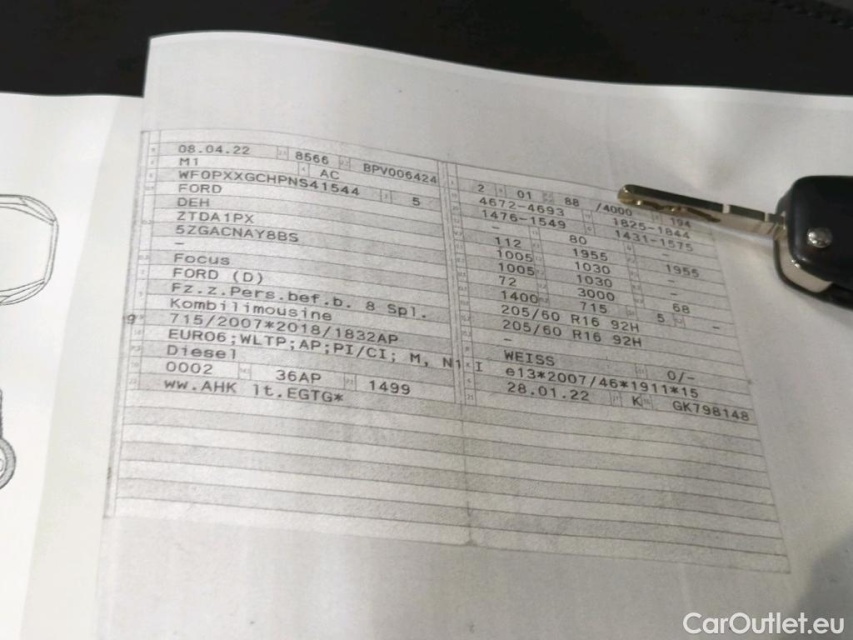 08.04.22 8566 BPV006424
M1 AC
WF0PXXGCHPNS41544 5
FORD
DEH
ZTDA1PX
5ZGACNAY8BS
-
Focus
FORD (D)
Fz.z.Pers.bef.b. 8 Spl.
Kombilimousine
715/2007*2018/1832AP
EURO6;WLTP;AP;PI/CI; M, N1 I
Diesel
0002 36AP 1499
ww.AHK lt.EGTG*
2 01 88 /4000 194
4672-4693 1825-1844
1476-1549 1431-1575
- 80 -
112 1955 1955
1005 1030 -
1005 1030 -
72 3000 68
1400 715 5 -
205/60 R16 92H
205/60 R16 92H
-
WEISS 0/-
e13*2007/46*1911*15
28.01.22 K GK798148
CarOutlet.eu